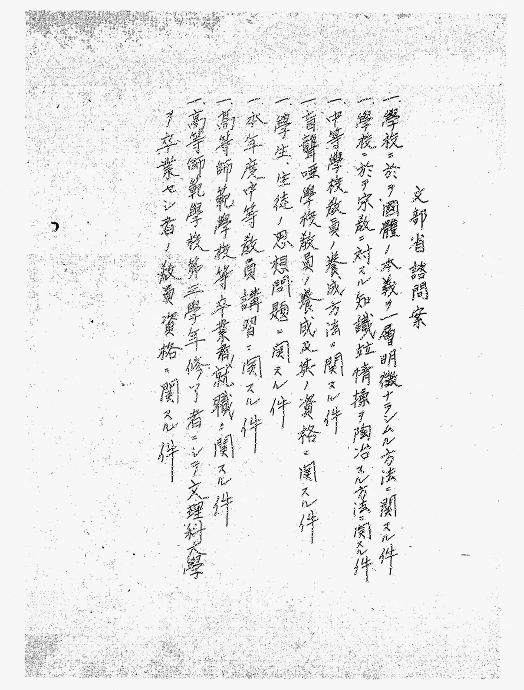 文部省諮問案
一、學校ニ於テ國體ノ本義ヲ一層明徴ナラシムル方法ニ關スル件
一、學校ニ於テ宗敎ニ対スル知識竝情操ヲ陶冶スル方法ニ関スル件
一、中等學校敎員ノ養成方法ニ関スル件
一、盲聾唖學校敎員ノ養成及其ノ資格ニ関スル件
一、學生、生徒ノ思想問題ニ関スル件
一、本年度中等敎員講習ニ関スル件
一、高等師範學校等卒業者就職ニ関スル件
一、高等師範學校第三學年修了者ニシテ文理科大學
ヲ卒業セシ者ノ敎員資格ニ関スル件